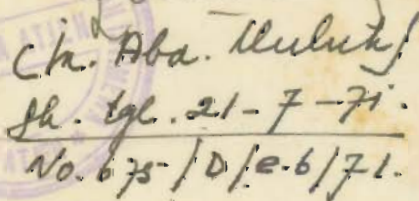 Ch. Abd. Muluk/
Sk. tgl. 21-7-71.
No. 675/D/e.6/71.